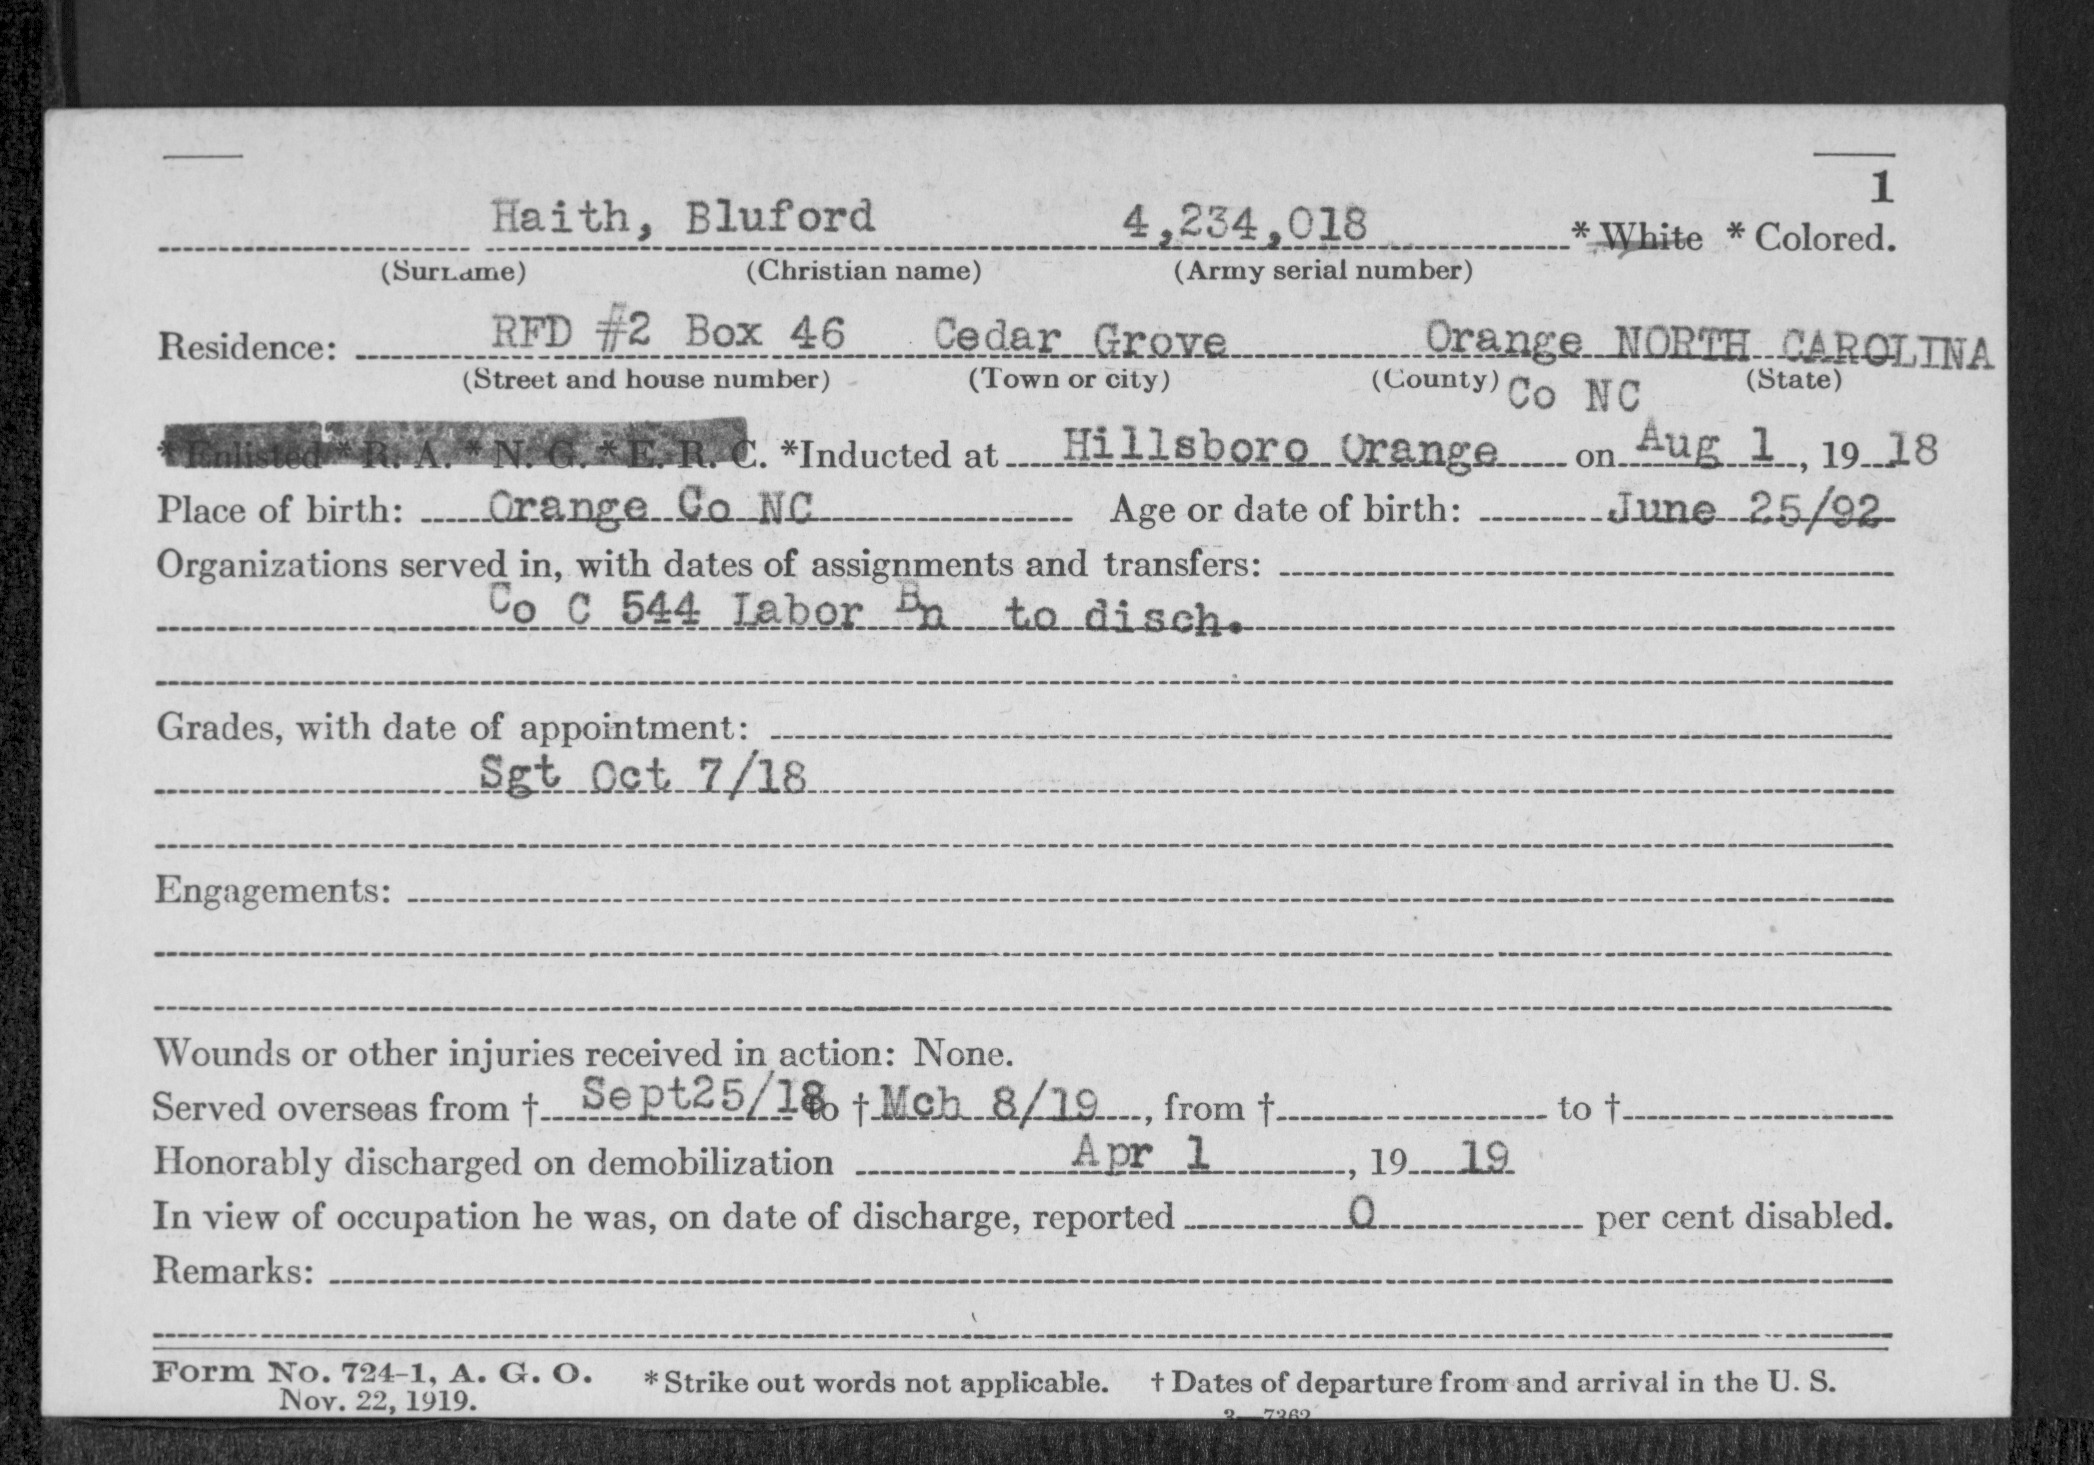 1
Haith, Bluford 4,234,018 * White * Colored.
(Surname) (Christian name) (Army serial number)
Residence: RFD #2 Box 46 Cedar Grove Orange NORTH CAROLINA
(Street and house number) (Town or city) (County) (State)
Co NC
* Enlisted * R. A. * N. G. * E. R. C. *Inducted at Hillsboro Orange on Aug 1, 1918
Place of birth: Orange Co NC Age or date of birth: June 25/92
Organizations served in, with dates of assignments and transfers:
Co C 544 Labor Bn to disch.
Grades, with date of appointment:
Sgt Oct 7/18
Engagements:
Wounds or other injuries received in action: None.
Served overseas from † Sept25/18 to † Mch 8/19, from † to †
Honorably discharged on demobilization Apr 1, 19 19
In view of occupation he was, on date of discharge, reported 0 per cent disabled.
Remarks:
Form No. 724-1, A. G. O. * Strike out words not applicable. † Dates of departure from and arrival in the U. S.
Nov. 22, 1919.
3—7362